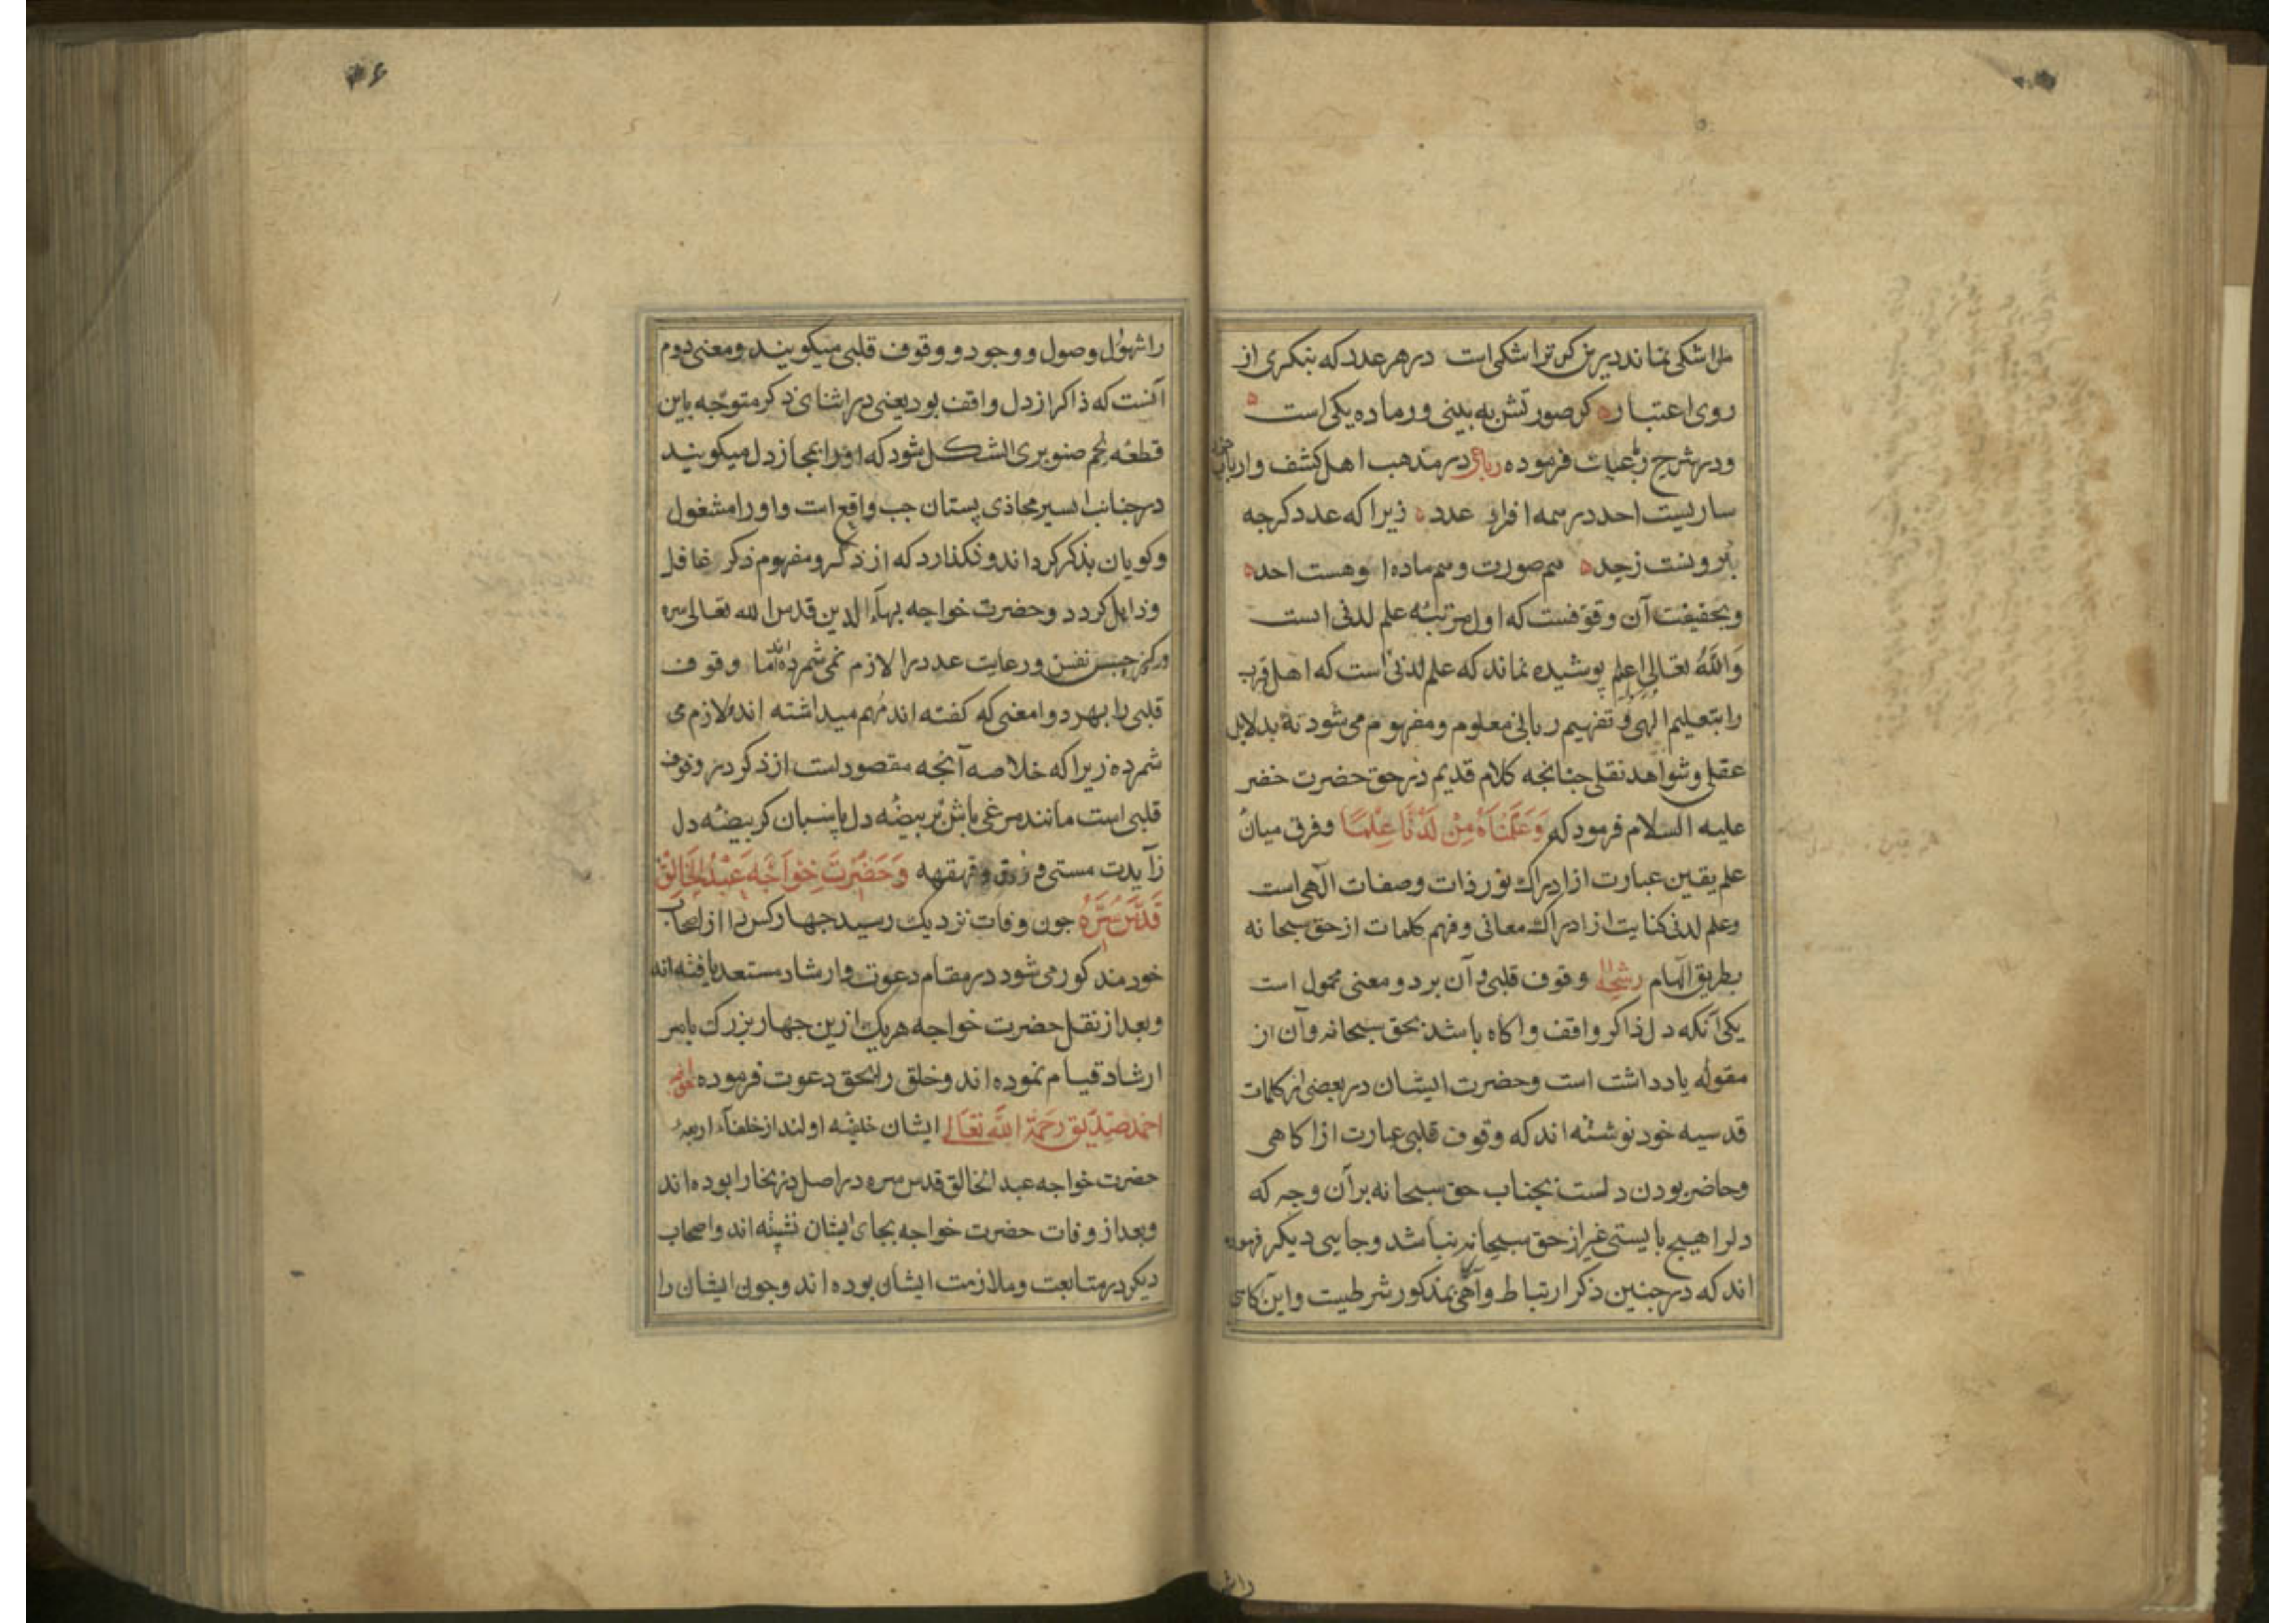 مرا شکی نماند درین کر ترا شکی است در هر عدد که بنکری از
روی اعتبار کر صورتش به بینی ور ماده یکی است
ودر شرح رباعیات فرموده رباعی در مذهب اهل کشف وارباب
ساریست احد در همه افراد عدد زیرا که عدد کرچه
برونست زحد هم صورت وهم ماده اوهست احد
وبحقیقت آن وقوفست که اول مرتبه علم لدنی است
وَاللهُ تعالی اعلم پوشیده نماند که علم لدنی است که اهل قرب
را بتعلیم الهی و تفهیم ربانی معلوم ومفهوم می شود نه بدلایل
عقلی وشواهد نقلی چنانچه کلام قدیم در حق حضرت خضر
علیه السلام فرمود که وَعَلَّمْنَاهُ مِنْ لَدُنَّا عِلْمًا وفرق میان
علم یقین عبارت از ادراک نور ذات وصفات الهی است
وعلم لدنی کنایت از ادراک معانی وفهم کلمات از حق سبحانه
بطریق الهام رشحه وقوف قلبی و آن بر دو معنی محمول است
یکی آنکه دل ذاکر واقف واکاه باشد بحق سبحانه وآن از
مقوله یادداشت است وحضرت ایشان در بعضی از کلمات
قدسیه خود نوشته اند که وقوف قلبی عبارت از اکاهی
وحاضر بودن دلست بجناب حق سبحانه بر آن وجه که
دلرا هیچ بایستی غیر از حق سبحانه نباشد وجایی دیکر فرموده
اند که در چنین ذکر ارتباط وآکهی بمذکور شرطیست واین آکاهی
را شهول وصول و وجود و وقوف قلبی میکویند ومعنی دوم
آنست که ذاکر از دل واقف بود یعنی در اثنای ذکر متوجه باین
قطعه لحم صنوبری الشکل شود که اورا بمجاز دل میکویند
در جنانب ایسر محاذی پستان چب واقع است واورا مشغول
وکویان بذکر کرداند ونکذارد که از ذکر ومفهوم ذکر غافل
وذاهل کردد وحضرت خواجه بهاء الدین قدس الله تعالی سره
در ذکر حبس نفس ورعایت عدد را لازم نمی شمرده اند اما وقوف
قلبی را بهر دو امعنی که کفته اند مهم میداشته اند ولازم می
شمرده زیرا که خلاصه آنچه مقصود است از ذکر در وقوف
قلبی است مانند مرغی باش بر بیضه دل پاسبان کز بیضه دل
زآیدت مستی و ذوق وقهقهه وَحَضْرَتِ خَواجَه عَبْدُالْخَالِقْ
قَدَّسَ سِرَّهُ چون وفات نزدیک رسید چهار کس را از اصحاب
خود مذکور می شود در مقام دعوت وارشاد مستعد یافته اند
وبعد از نقل حضرت خواجه هریک ازین چهار بزرک بامر
ارشاد قیام نموده اند وخلق را بحق دعوت فرموده خواجه
احمد صدیق رَحِمَهُ اللهُ تَعَالی ایشان خلیفه اولند از خلفاء اربعه
حضرت خواجه عبد الخالق قدس سره در اصل در بخارا بوده اند
وبعد از وفات حضرت خواجه بجای ایشان نشسته اند واصحاب
دیکر در متابعت وملازمت ایشان بوده اند وچون ایشان را